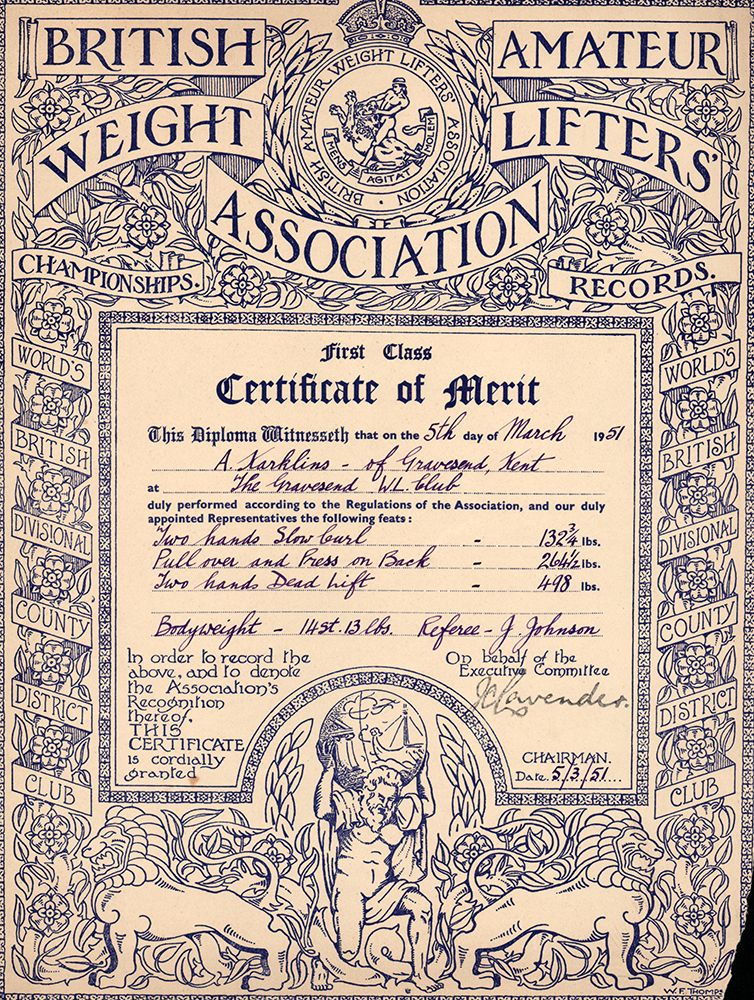 BRITISH AMATEUR
WEIGHT LIFTERS'
ASSOCIATION
BRITISH AMATEUR WEIGHT LIFTERS' ASSOCIATION
MENS AGITAT MOLEM
CHAMPIONSHIPS. RECORDS.
First Class
Certificate of Merit
This Diploma Witnesseth that on the 5th day of March 1951
A. Karklins - of Gravesend, Kent
at The Gravesend W.L. Club
duly performed according to the Regulations of the Association, and our duly
appointed Representatives the following feats :
Two hands Slow Curl - 132 3/4 lbs.
Pull over and Press on Back - 264 1/2 lbs.
Two hands Dead Lift - 498 lbs.
Bodyweight - 14st. 13 lbs. Referee - J. Johnson
In order to record the
above, and to denote
the Association's
Recognition
thereof,
THIS
CERTIFICATE
is cordially
granted
On behalf of the
Executive Committee
Lavender.
CHAIRMAN.
Date. 5/3/51...
WORLD'S
BRITISH
DIVISIONAL
COUNTY
DISTRICT
CLUB
WORLD'S
BRITISH
DIVISIONAL
COUNTY
DISTRICT
CLUB
W. F. THOMPS